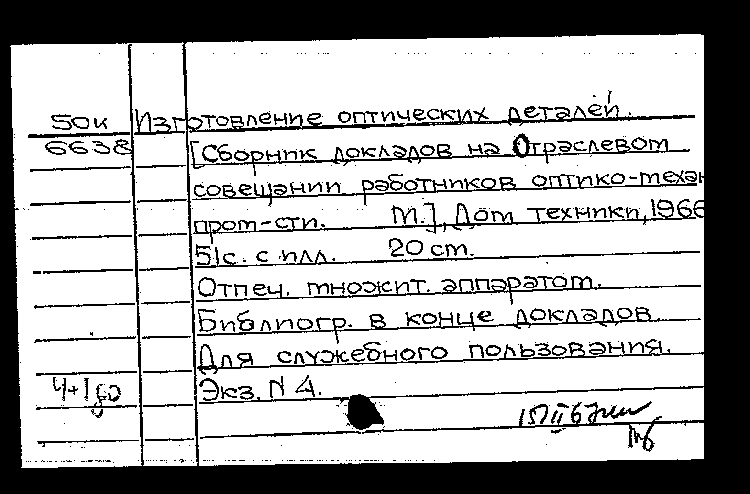 50к Изготовление оптических деталей.
6638 [Сборник докладов на Отраслевом
совещании работников оптико-механ
пром-сти. М.], Дом техники, 1966
51с. с илл. 20 cm.
Отпеч. множит. аппаратом.
Библиогр. в конце докладов.
Для служебного пользования.
4+1 Экз. N 4.